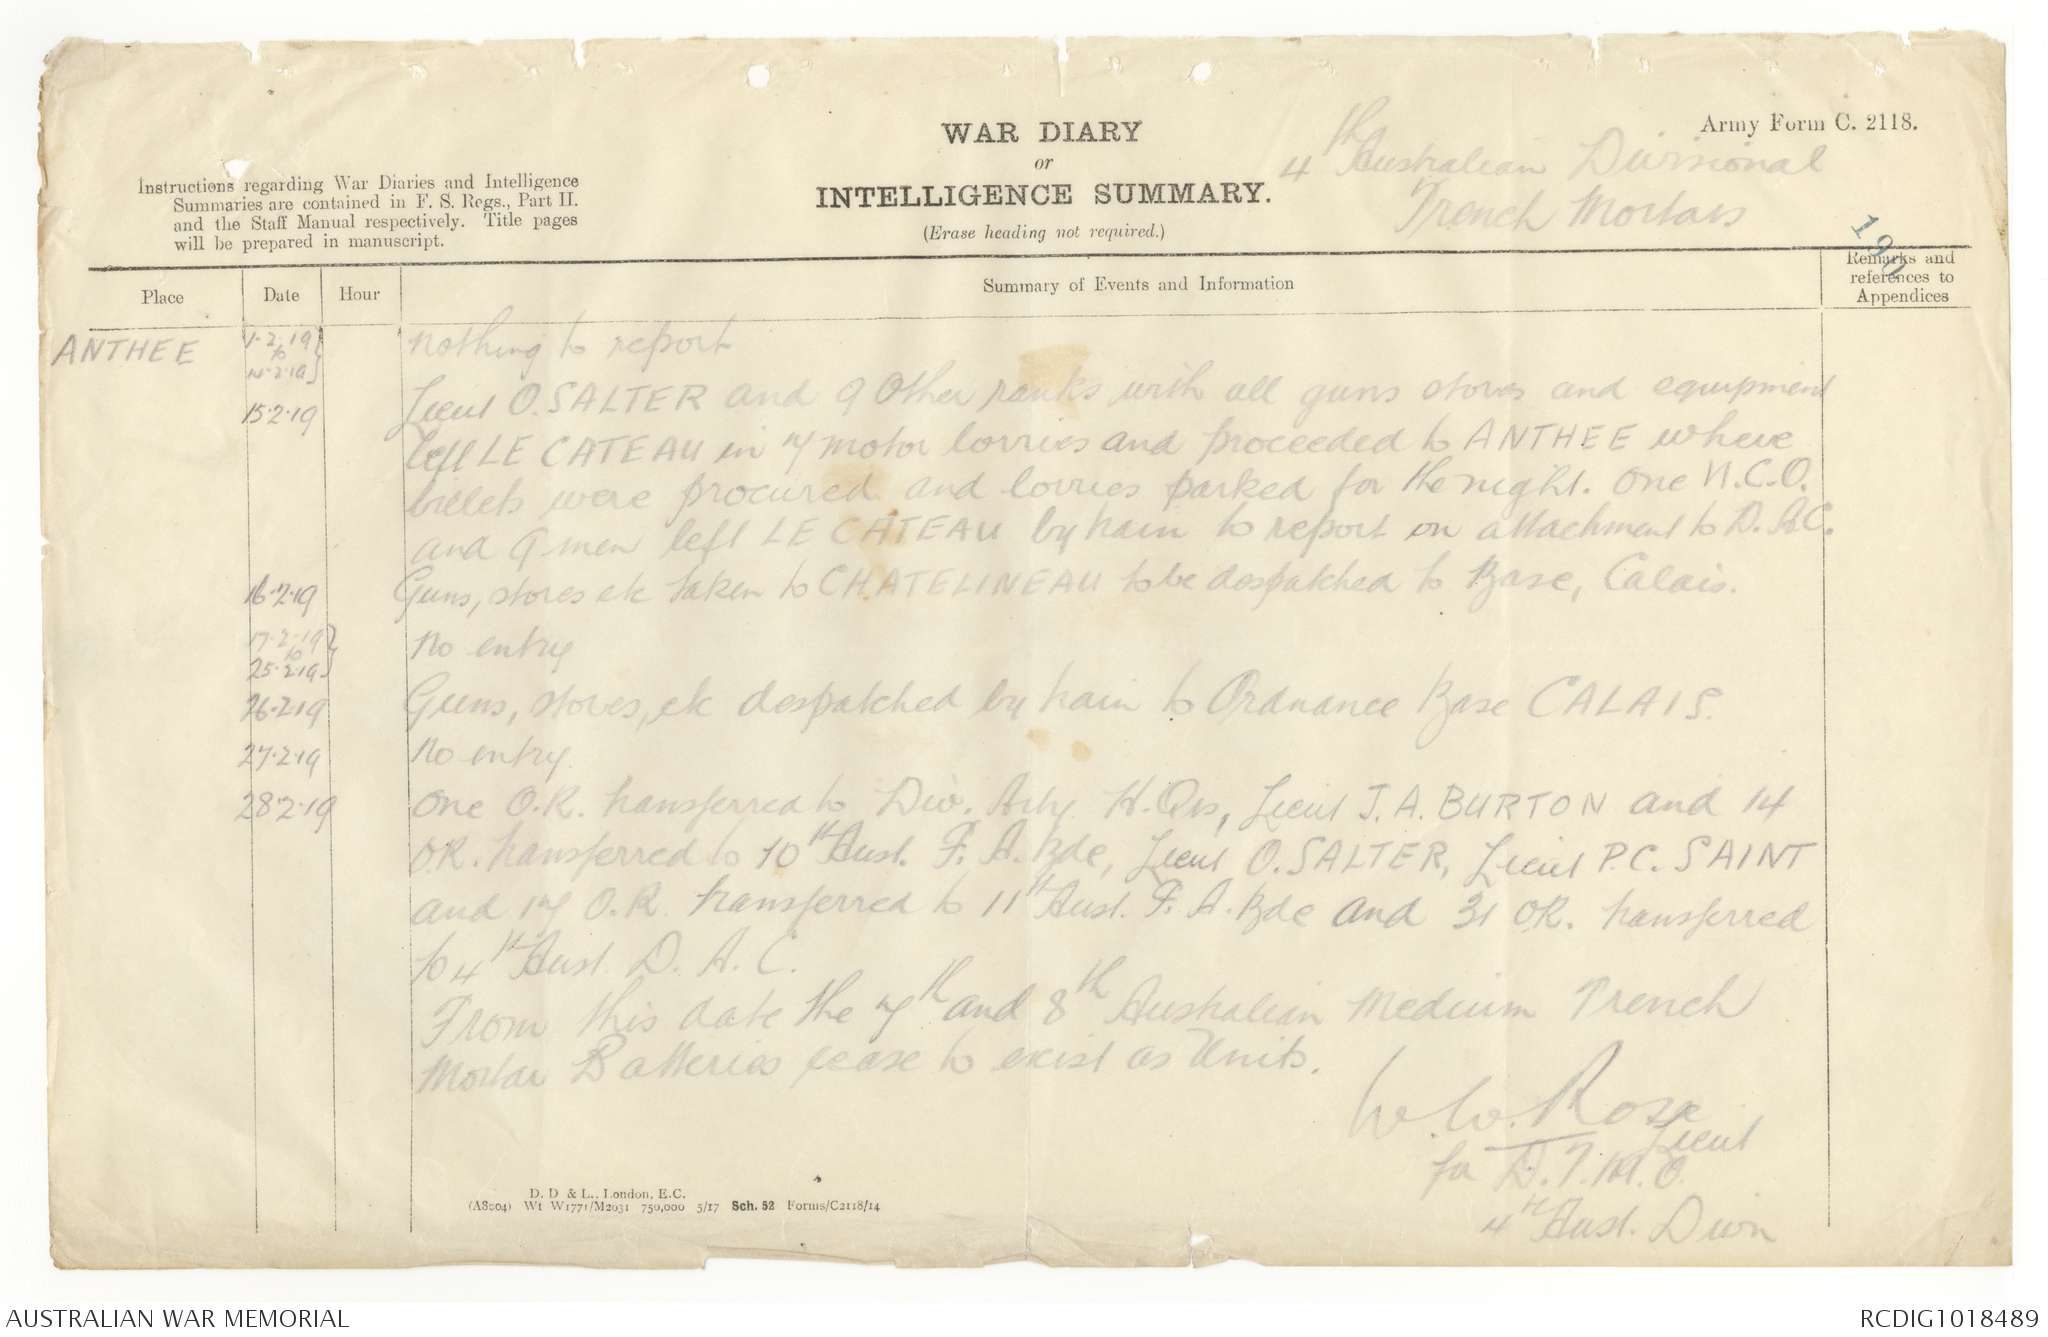 WAR DIARY
or
INTELLIGENCE SUMMARY.
(Erase heading not required.)
Army Form C. 2118.
4th Australian Divisional
Trench Mortars
190
Instructions regarding War Diaries and Intelligence
Summaries are contained in F. S. Regs., Part II.
and the Staff Manual respectively. Title pages
will be prepared in manuscript.
Place Date Hour Summary of Events and Information Remarks and references to Appendices
ANTHEE 1.2.19 to 14.2.19 } nothing to report
15.2.19 Lieut O. SALTER and 9 Other ranks with all guns stores and equipment
left LE CATEAU in 7 motor lorries and proceeded to ANTHEE where
billets were procured and lorries parked for the night. One N.C.O.
and 9 men left LE CATEAU by train to report on attachment to D.A.C.
16.2.19 Guns, stores etc taken to CHATELINEAU to be despatched to Base, Calais.
17.2.19 to 25.2.19 } No entry
26.2.19 Guns, stores, etc despatched by train to Ordnance Base CALAIS.
27.2.19 No entry.
28.2.19 One O.R. transferred to Div. Arty H.Qrs, Lieut J. A. BURTON and 14
O.R. transferred to 10th Aust. F. A. Bde, Lieut O. SALTER, Lieut P.C. SAINT
and 17 O.R. transferred to 11th Aust. F. A. Bde and 31 O.R. transferred
to 4th Aust. D. A. C.
From this date the 7th and 8th Australian Medium Trench
Mortar Batteries cease to exist as Units.
W. W. Rose
Lieut
for D. T. M. O.
4th Aust. Divn
D. D & L., London, E.C.
(A8004) Wt W1771/M2031 750,000 5/17 Sch. 52 Forms/C2118/14
AUSTRALIAN WAR MEMORIAL
RCDIG1018489